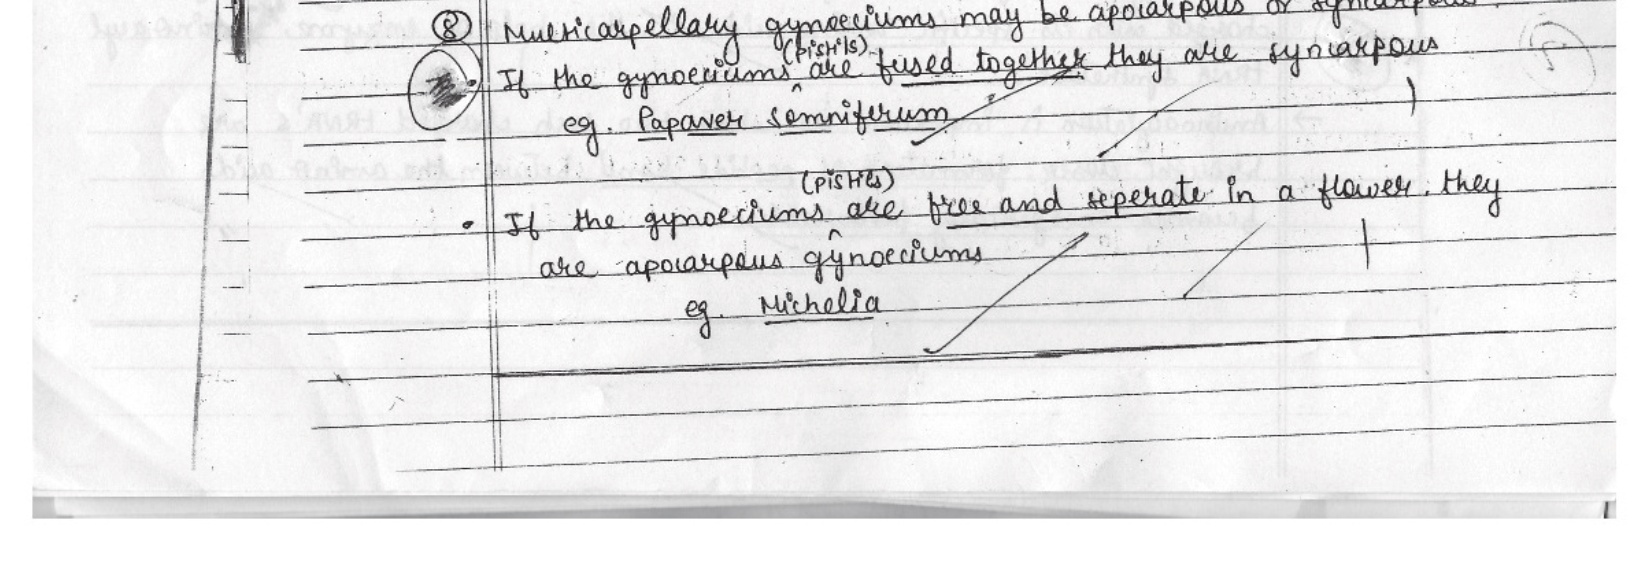 ⑧ Multicarpellary gynoeciums may be apocarpous or syncarpous.
(pistils)
• If the gynoeciums ^ are fused together they are syncarpous
eg. Papaver somniferum.
(pistils)
• If the gynoeciums ^ are free and seperate in a flower. they
are apocarpous gynoeciums
eg. Michelia